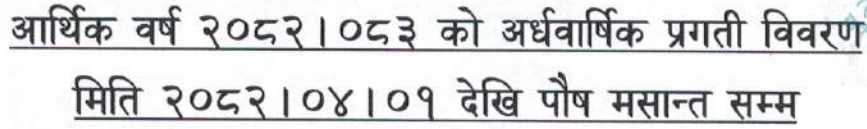 आर्थिक वर्ष २०८२।०८३ को अर्धवार्षिक प्रगती विवरण
मिति २०८२।०४।०१ देखि पौष मसान्त सम्म